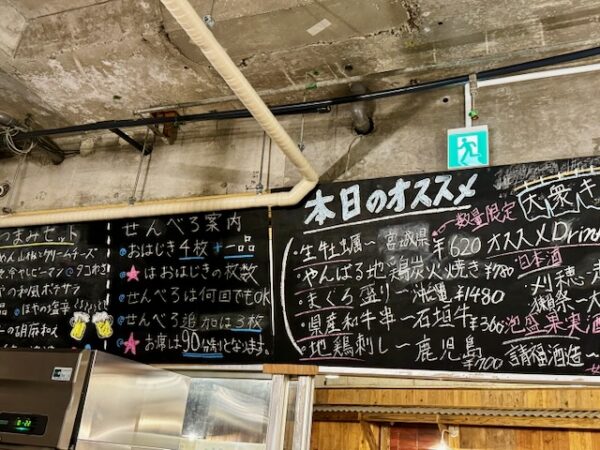 つまみセット
クリームチーズ
ピーマン
の和風ポテサラ
の胡麻和え
せんべろ案内
おはじき4枚+一品
★はおはじきの枚数
せんべろは何回でもOK
せんべろ追加は3枚
★お席は90分制となります。
本日のオススメ
数量限定
・生牡蠣〜宮城県 ¥620
・やんばる地鶏炭火焼き ¥780
・まぐろ盛り〜沖縄 ¥1480
・県産和牛串〜石垣牛 ¥360
・地鶏刺し〜鹿児島 ¥700
大衆き
オススメDrin
日本酒
刈穂〜
獺祭〜
泡盛果実酒
請福酒造〜